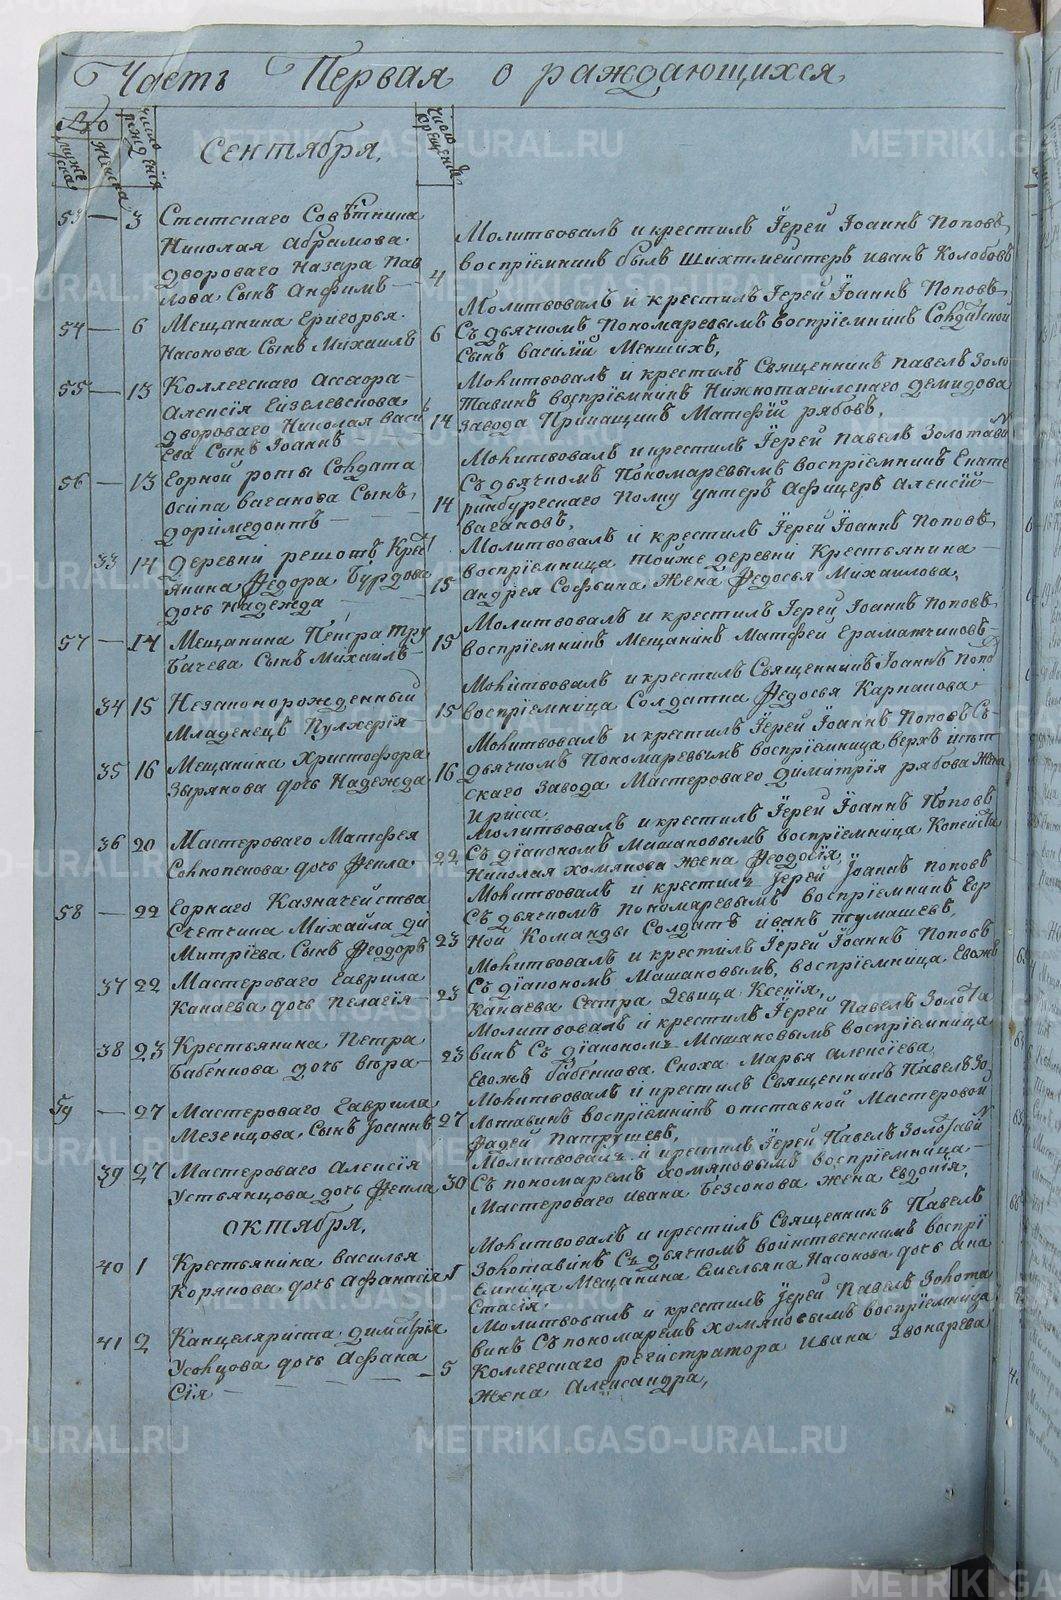 Часть Первая о раждающихся
Сентября.
число рождения
число крещения
53 — 3 Статскаго Совѣтника
Николая Абрамова
двороваго Назара Пав
лова Сынъ Анфимъ
4 Молитвовалъ и крестилъ Їерей Їоаннъ Поповъ
воспрїемникъ былъ Шихтмейстеръ Иванъ Колобовъ
54 — 6 Мещанина Григорья
Насонова Сынъ Михаилъ
6 Молитвовалъ и крестилъ Їерей Їоаннъ Поповъ
Съ дьячкомъ Пономаревымъ воспрїемникъ Солдатской
Сынъ Василїй Меншихъ,
55 — 13 Коллегскаго Ассесора
Алексїя
двороваго Николая Васил
ева Сынъ Їоаннъ
14 Молитвовалъ и крестилъ Священникъ Павелъ Золо
тавинъ воспрїемникъ Нижнотагилскаго демидова
завода Прикащикъ Матфїй рябовъ,
56 — 13 Горной роты Солдата
Осипа ваганова Сынъ,
доримедонтъ
14 Молитвовалъ и крестилъ Їерей Павелъ Золотавинъ
Съ дьячкомъ Пономаревымъ воспрїемникъ Екате
ринбургскаго Полку унтеръ Афицеръ Алексїй
вагановъ,
33 14 Деревни решотъ Крест
янина Федора Бурдова
дочь Надежда
15 Молитвовалъ и крестилъ Їерей Їоаннъ Поповъ
воспрїемница тойже деревни Крестьянина
Андрея Софьина Жена Федосья Михаилова,
57 — 14 Мещанина Петра Тру
бачева Сынъ Михаилъ
15 Молитвовалъ и крестилъ Їерей Їоаннъ Поповъ
воспрїемникъ Мещанинъ Матфей Граматчиковъ
34 15 Незаконорожденный
Младенецъ Пулхерїя
15 Молитвовалъ и крестилъ Священникъ Їоаннъ Попо
воспрїемница Солдатка Федосья Карпакова
35 16 Мещанина Христофора
Зырянова дочь Надежда
16 Молитвовалъ и крестилъ Їерей Їоаннъ Поповъ Съ
дьячкомъ Пономаревымъ воспрїемница верхъ исет
скаго Завода Мастероваго димитрїя рябова Жена
36 20 Мастероваго Матфея
дочь Фекла
22 Молитвовалъ и крестилъ Їерей Їоаннъ Поповъ
Съ дїакономъ Машановымъ воспрїемница Копеиста
Николая хомякова жена Феодосїя,
58 — 22 Горнаго Казначейства
Счетчика Михайла Ди
митрїева Сынъ Феодоръ
23 Молитвовалъ и крестилъ Їерей Їоаннъ Поповъ
Съ дьячкомъ Пономаревымъ воспрїемникъ Гор
ной Команды Солдатъ иванъ тумашевъ,
37 22 Мастероваго Гаврила
Канаева дочь Пелагїя
23 Молитвовалъ и крестилъ Їерей Їоаннъ Поповъ
Съ дїакономъ Машановымъ, воспрїемница Евожъ
Канаева Сестра Девица Ксенїя,
38 23 Крестьянина Петра
Бабенкова дочь вѣра
23 Молитвовалъ и крестилъ Їерей Павелъ Золота
винъ Съ дїакономъ Машановымъ воспрїемница
Евожъ Бабенкова Сноха Марья Алексїева,
59 — 27 Мастероваго Гаврила
Мезенцова, Сынъ Їоаннъ
27 Молитвовалъ и крестилъ Священникъ Павелъ Зо
лотавинъ воспрїемникъ отставной Мастеровой
Фадей Патрушевъ,
39 27 Мастероваго Алексїя
Устьянцова дочь Фекла
30 Молитвовалъ и крестилъ Їерей Павелъ Золотавин
Съ пономаремъ хомяковымъ воспрїемница
Мастероваго Ивана Безсонова жена Евдокїя,
Октября.
40 1 Крестьянина василья
Корякова дочь Афанасїя
5 Молитвовалъ и крестилъ Священникъ Павелъ
Золотавинъ Съ дьячкомъ воинственскимъ воспрї
емница Мещанина Емельяна Насонова дочь Ана
стасїя
41 2 Канцеляриста димитрїя
Усолцова дочь Афана
сїя
5 Молитвовалъ и крестилъ Їерей Павелъ Золота
винъ Съ пономаремъ хомяковымъ воспрїемница
Коллегскаго регїстратора Ивана Звонарева
Жена Александра,